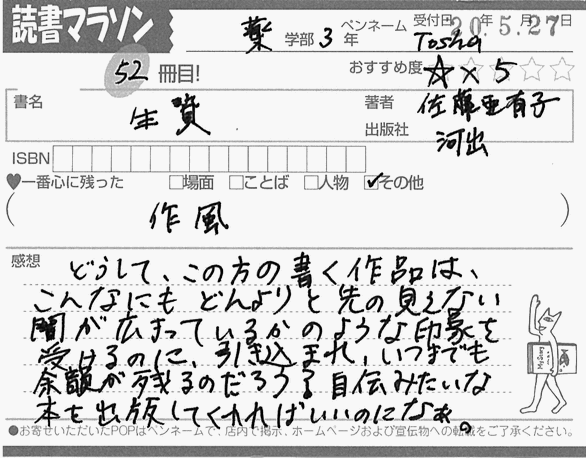 読書マラソン
薬 学部 3 年
ペンネーム Tosha
受付日 20年 5月27日
52 冊目!
おすすめ度 ☆×5 ☆☆
書名 生贄
著者 佐藤亜有子
出版社 河出
ISBN
♥一番心に残った □場面 □ことば □人物 ☑その他
( 作風 )
感想 どうして、この方の書く作品は、
こんなにも どんよりと 先の見えない
闇が広まっているかのような印象を
受けるのに、引き込まれ、いつまでも
余韻が残るのだろう?自伝みたいな
本を出版してくれればいいのになぁ。
●お寄せいただいたPOPはペンネームで、店内で掲示、ホームページおよび宣伝物への転載をご了承ください。